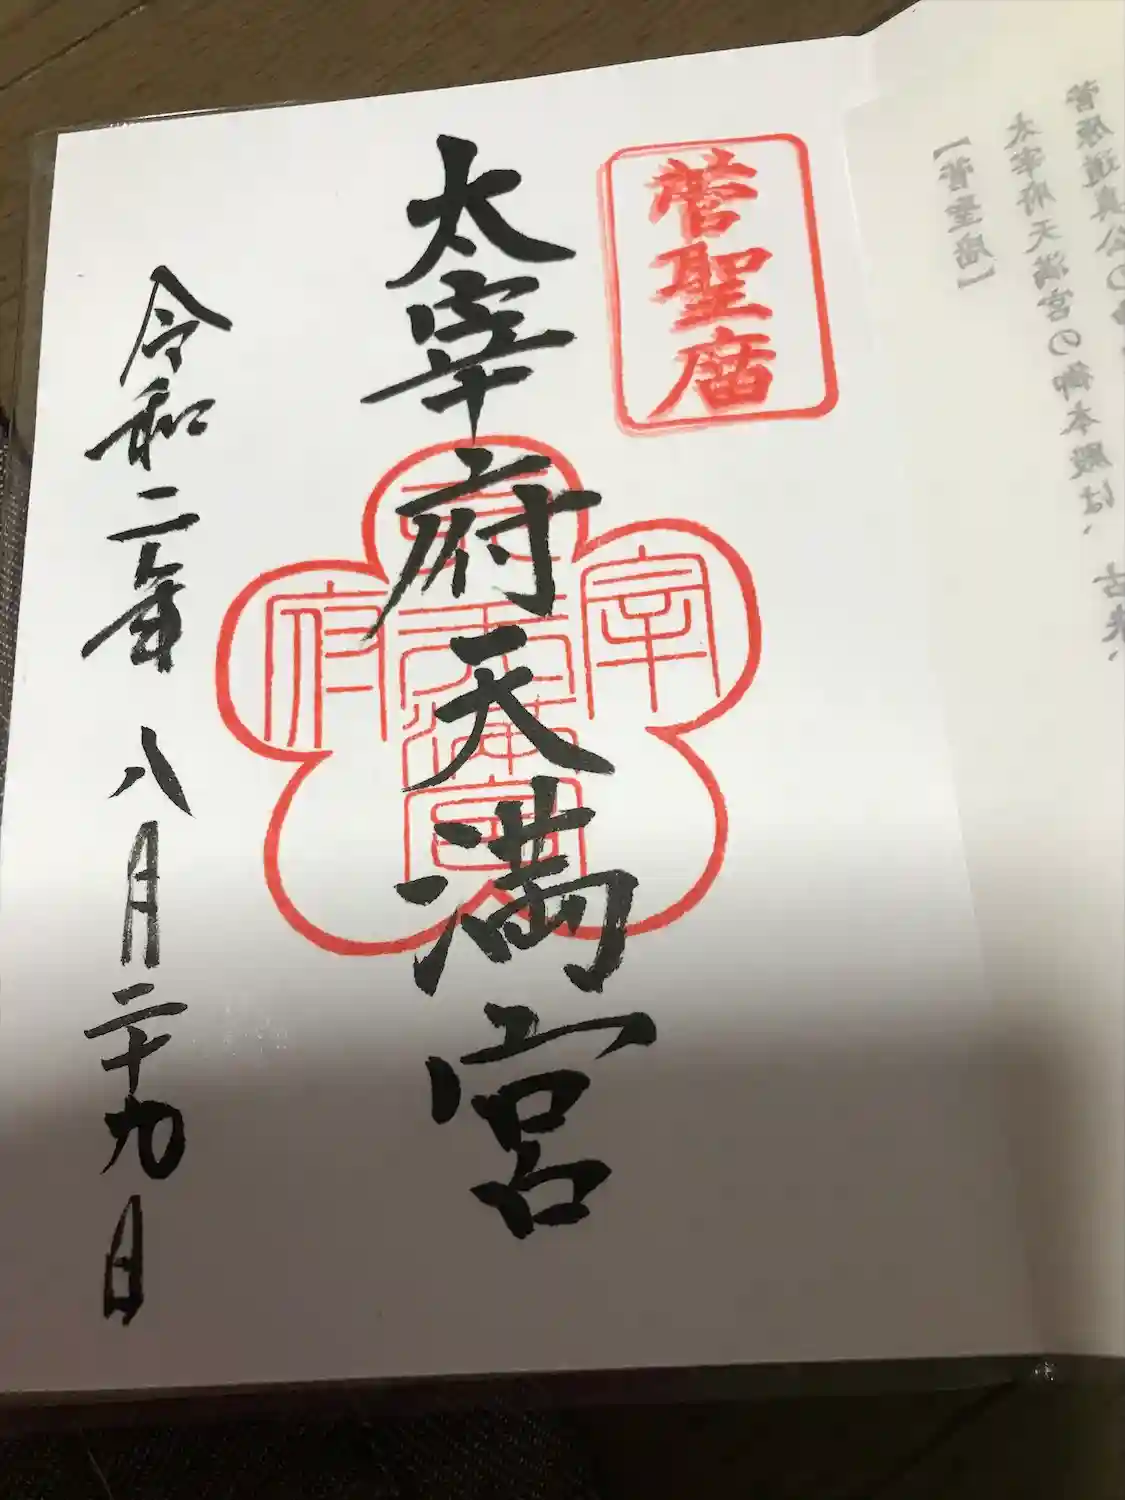 菅原道真公の
太宰府天満宮の御本殿は、古来、
【菅聖庿】
菅聖庿
太宰府天満宮
太宰府天満宮
令和二年 八月二十九日